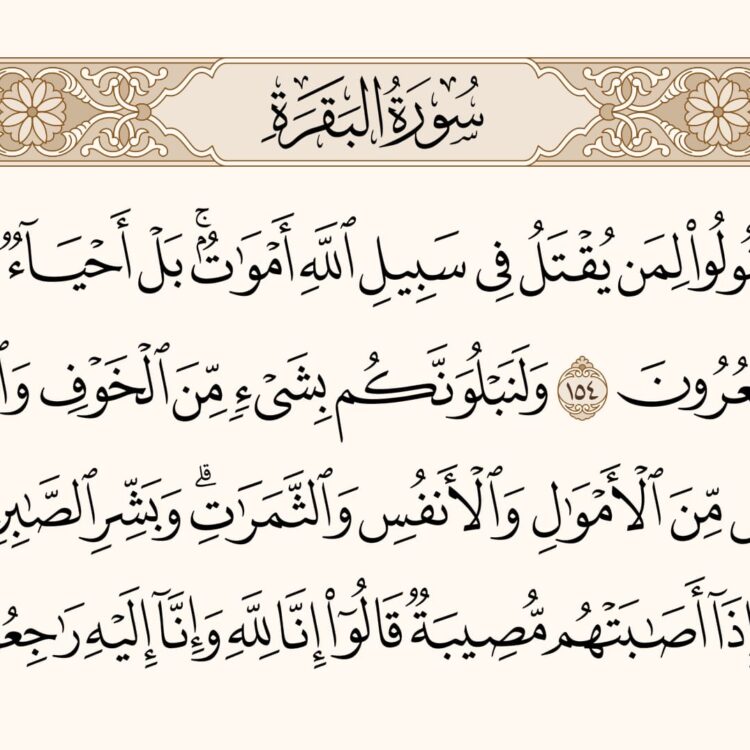 سُورَةُ الْبَقَرَةِ
لِمَن يُقْتَلُ فِى سَبِيلِ ٱللَّهِ أَمْوَٰتٌۢ ۚ بَلْ أَحْيَآءٌ
١٥٤ وَلَنَبْلُوَنَّكُم بِشَىْءٍ مِّنَ ٱلْخَوْفِ
مِّنَ ٱلْأَمْوَٰلِ وَٱلْأَنفُسِ وَٱلثَّمَرَٰتِ ۗ وَبَشِّرِ
أَصَٰبَتْهُم مُّصِيبَةٌ قَالُوٓا۟ إِنَّا لِلَّهِ وَإِنَّآ إِلَيْهِ